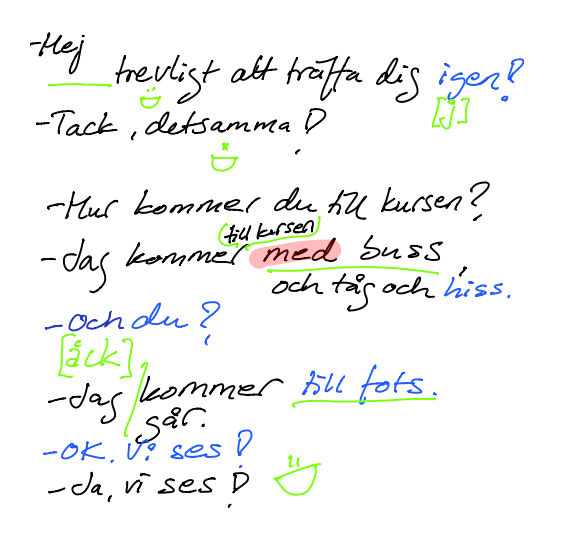 -Hej
trevligt att träffa dig igen!
[j]
-Tack, detsamma!
-Hur kommer du till kursen?
(till kursen)
-Jag kommer med buss,
och tåg och hiss.
-Och du?
[åck]
-Jag / kommer till fots.
går.
-OK. Vi ses!
-Ja, vi ses!